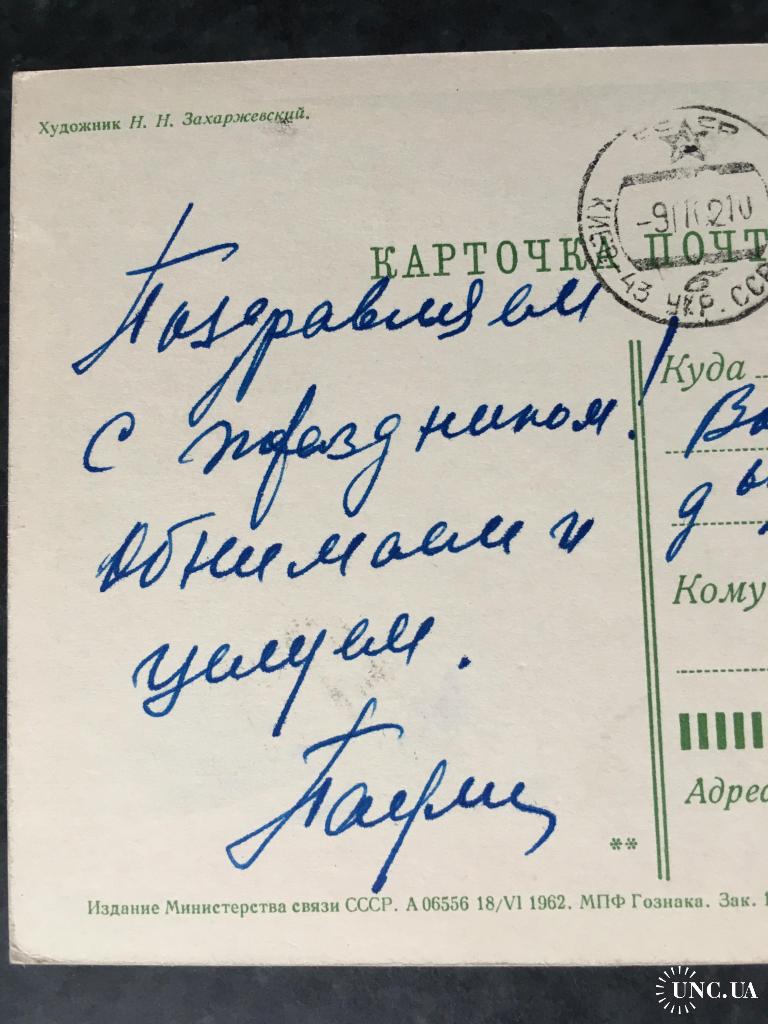 Художник Н. Н. Захаржевский.
КАРТОЧКА ПОЧТ
КИЕВ-43 УКР. ССР
Поздравляем
с праздником!
Обнимаем и
целуем.
Куда
Кому
Адрес
**
Издание Министерства связи СССР. А 06556 18/VI 1962. МПФ Гознака. Зак. 1
UNC.UA